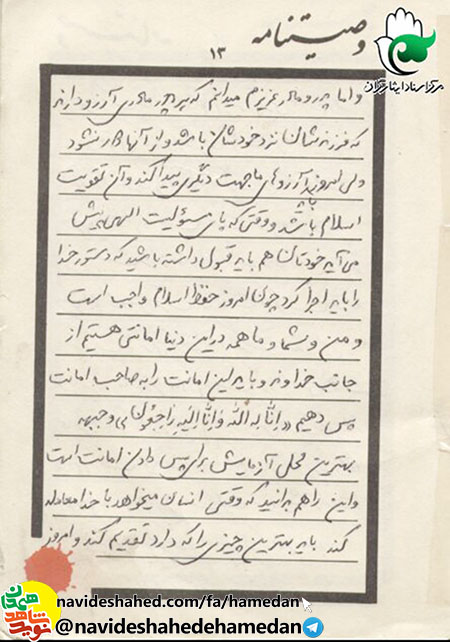 وصیتنامه
۱۳
مرکز اسناد ایثارگران
و اما پدر و مادر عزیزم میدانم که هر پدر مادری آرزو دارند
که فرزندشان نزد خودشان باشد و از آنها دور نشود
ولی امروز باید آرزوهای ما جهت دیگری پیدا کند و آن تقویت
اسلام باشد و وقتی که پای مسئولیت الهی پیش
می آید خودتان هم باید قبول داشته باشید که دستور خدا
را باید اجرا کرد چون امروز حفظ اسلام واجب است
و من و شما و ما همه در این دنیا امانتی هستیم از
جانب خداوند و باید این امانت را به صاحب امانت
پس دهیم «انّا لِلّه وَ اِنّا اِلَیهِ راجِعُون» و جبهه
بهترین محل آزمایش برای پس دادن امانت است
و این را هم بدانید که وقتی انسان میخواهد با خدا معامله
کند باید بهترین چیزی را که دارد تقدیم کند و امروز
نوید شاهد همدان
navideshahed.com/fa/hamedan
@navideshahedehamedan